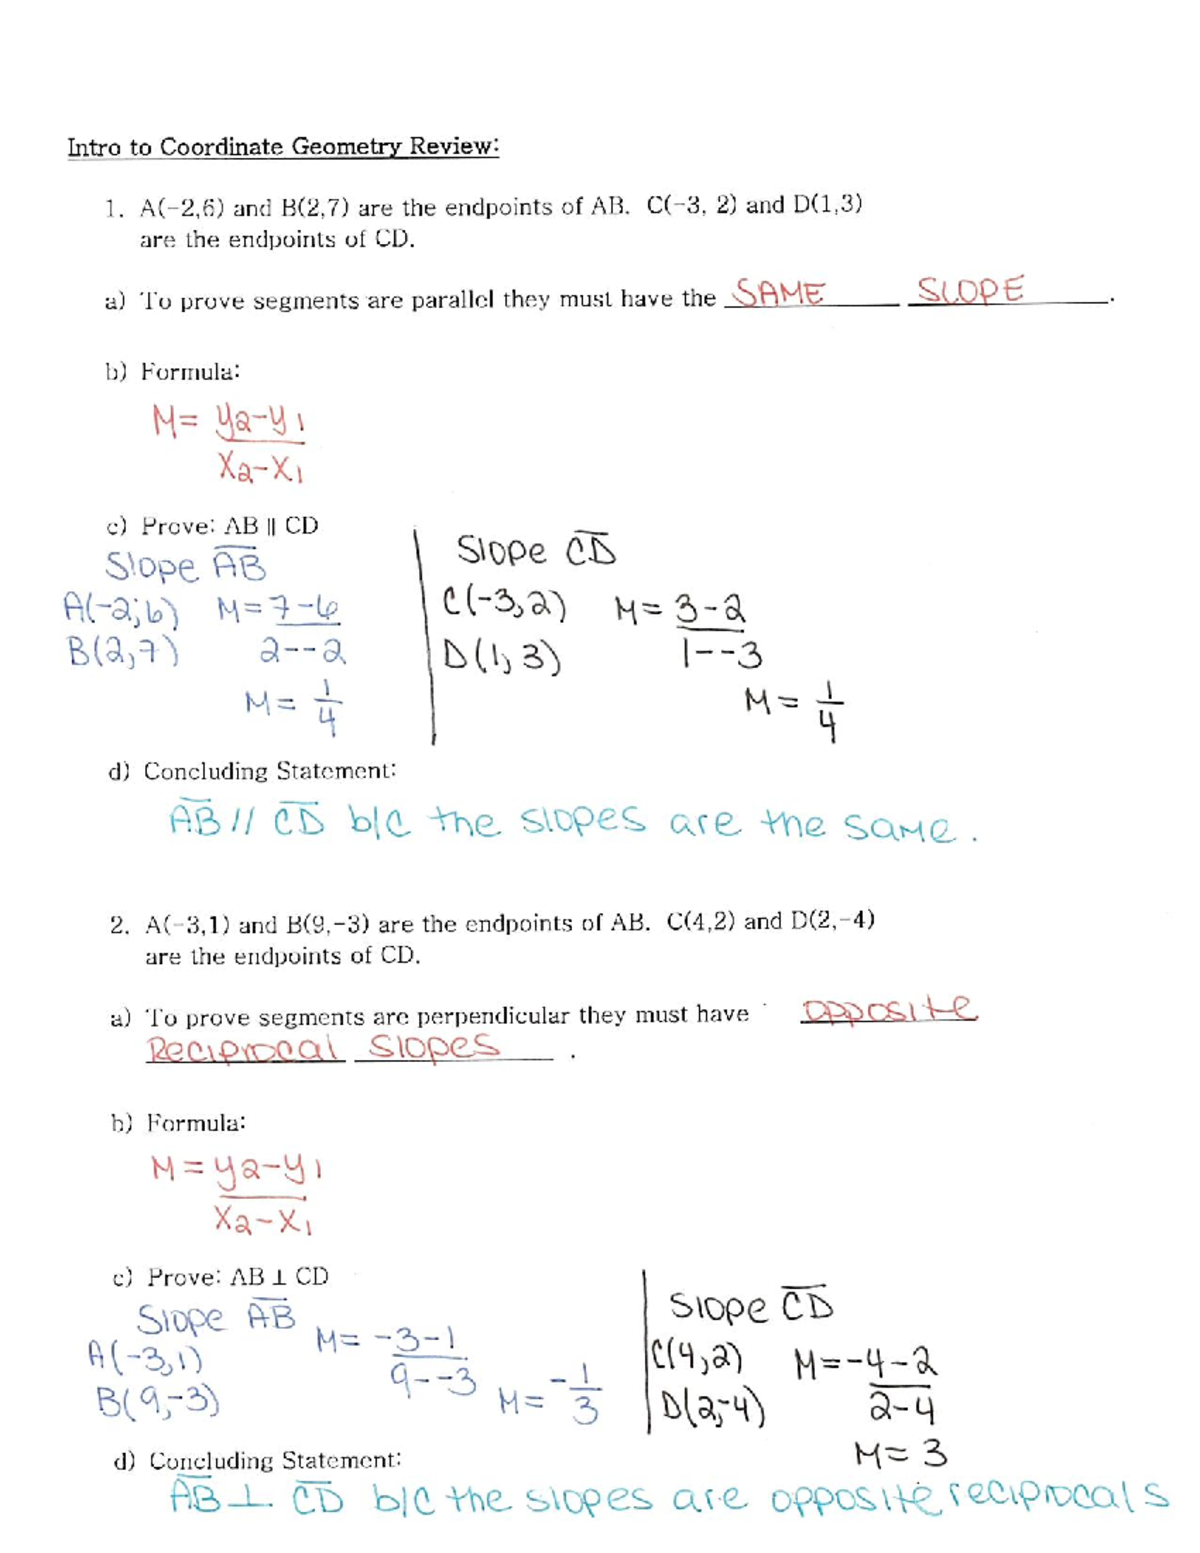 Intro to Coordinate Geometry Review:
1. A(-2,6) and B(2,7) are the endpoints of AB. C(-3, 2) and D(1,3)
are the endpoints of CD.
a) To prove segments are parallel they must have the SAME SLOPE.
b) Formula:
M= y2-y1
x2-x1
c) Prove: AB || CD
Slope AB
A(-2,6) M= 7-6
B(2,7) 2--2
M= 1
4
Slope CD
C(-3,2) M= 3-2
D(1,3) 1--3
M= 1
4
d) Concluding Statement:
AB // CD b/c the slopes are the same.
2. A(-3,1) and B(9,-3) are the endpoints of AB. C(4,2) and D(2,-4)
are the endpoints of CD.
a) To prove segments are perpendicular they must have opposite
Reciprocal Slopes.
b) Formula:
M= y2-y1
x2-x1
c) Prove: AB ⊥ CD
Slope AB
A(-3,1) M= -3-1
B(9,-3) 9--3
M= -1
3
Slope CD
C(4,2) M= -4-2
D(2,-4) 2-4
M= 3
d) Concluding Statement:
AB ⊥ CD b/c the slopes are opposite reciprocals